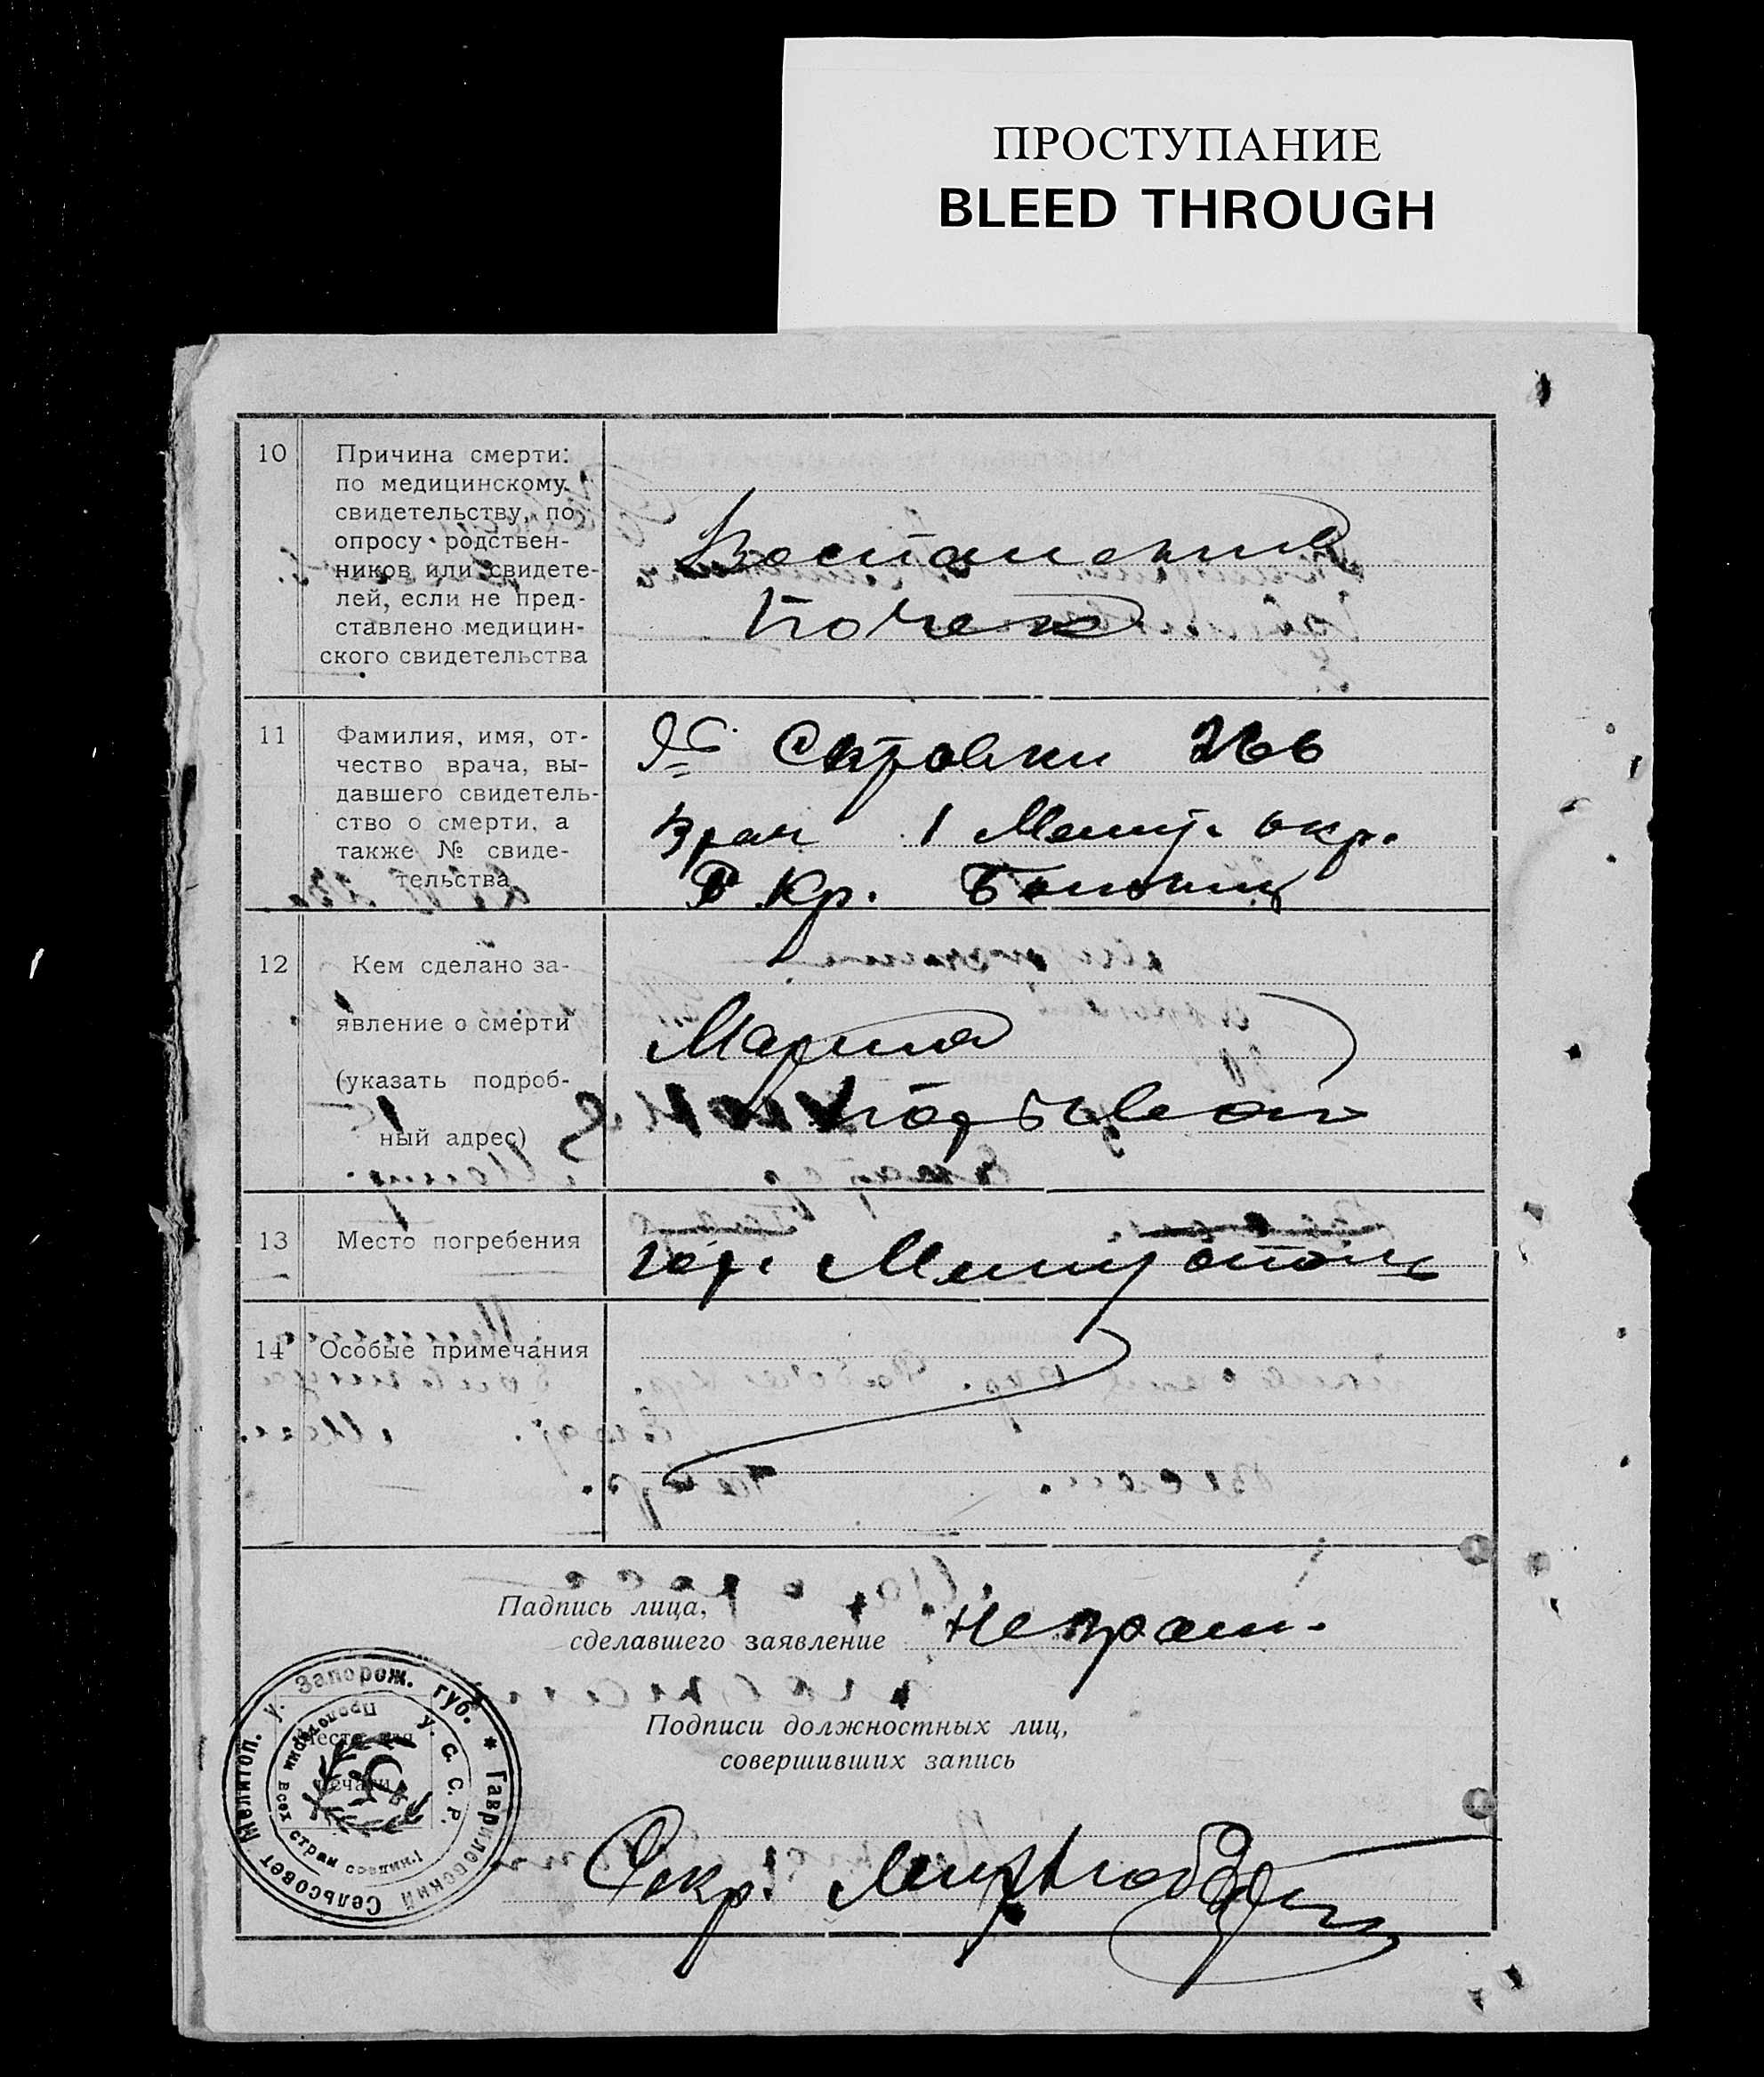 ПРОСТУПАНИЕ
BLEED THROUGH
10
Причина смерти:
по медицинскому
свидетельству, по
опросу родствен-
ников или свидете-
лей, если не пред-
ставлено медицин-
ского свидетельства
Воспаление
Почек
11
Фамилия, имя, от-
чество врача, вы-
давшего свидетель-
ство о смерти, а
также № свиде-
тельства
№ Справки 266
Врач 1 Мелит. окр.
Р Кр. Больниц
12
Кем сделано за-
явление о смерти
(указать подроб-
ный адрес)
Мария
13
Место погребения
гор. Мелитополь
14
Особые примечания
Падпись лица,
сделавшего заявление неграм.
Подписи должностных лиц,
совершивших запись
Место для
печати
Мелитоп. у. Запорож. губ. * Гавриловский Сельсовет
У. С. С. Р. Пролетарии всех стран соедин.!
Секр.